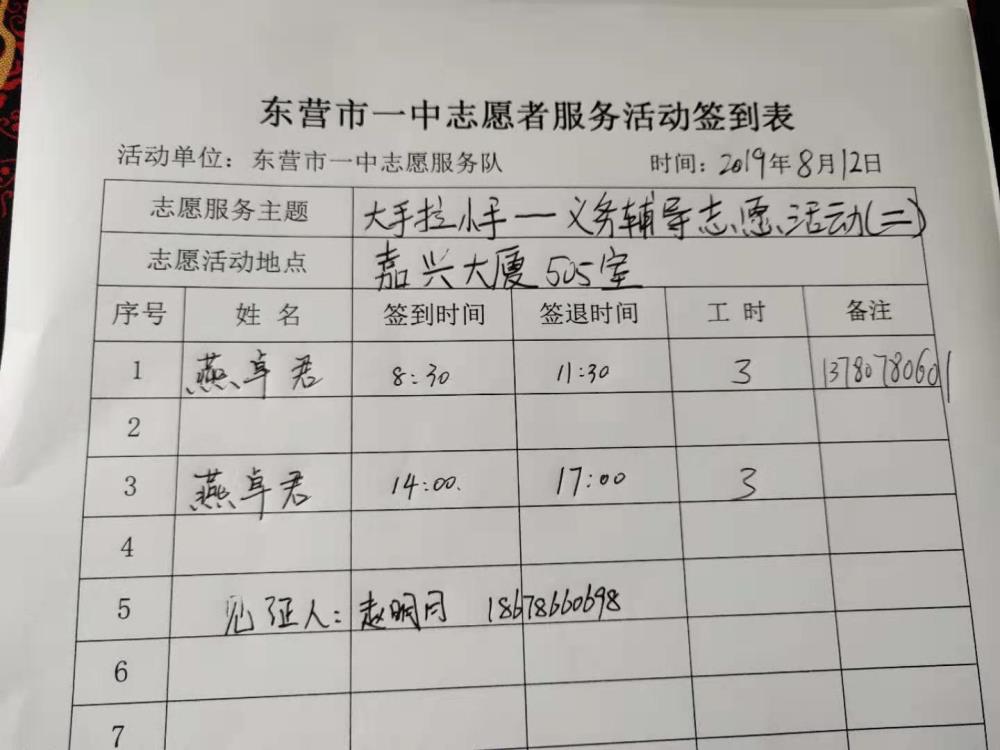 东营市一中志愿者服务活动签到表
活动单位：东营市一中志愿服务队 时间：2019年8月12日
志愿服务主题 大手拉小手一义务辅导志愿活动(二)
志愿活动地点 嘉兴大厦505室
序号 姓名 签到时间 签退时间 工时 备注
1 燕卓君 8:30 11:30 3 13780780601
2
3 燕卓君 14:00. 17:00 3
4
5 见证人：赵明月 18678660698
6
7